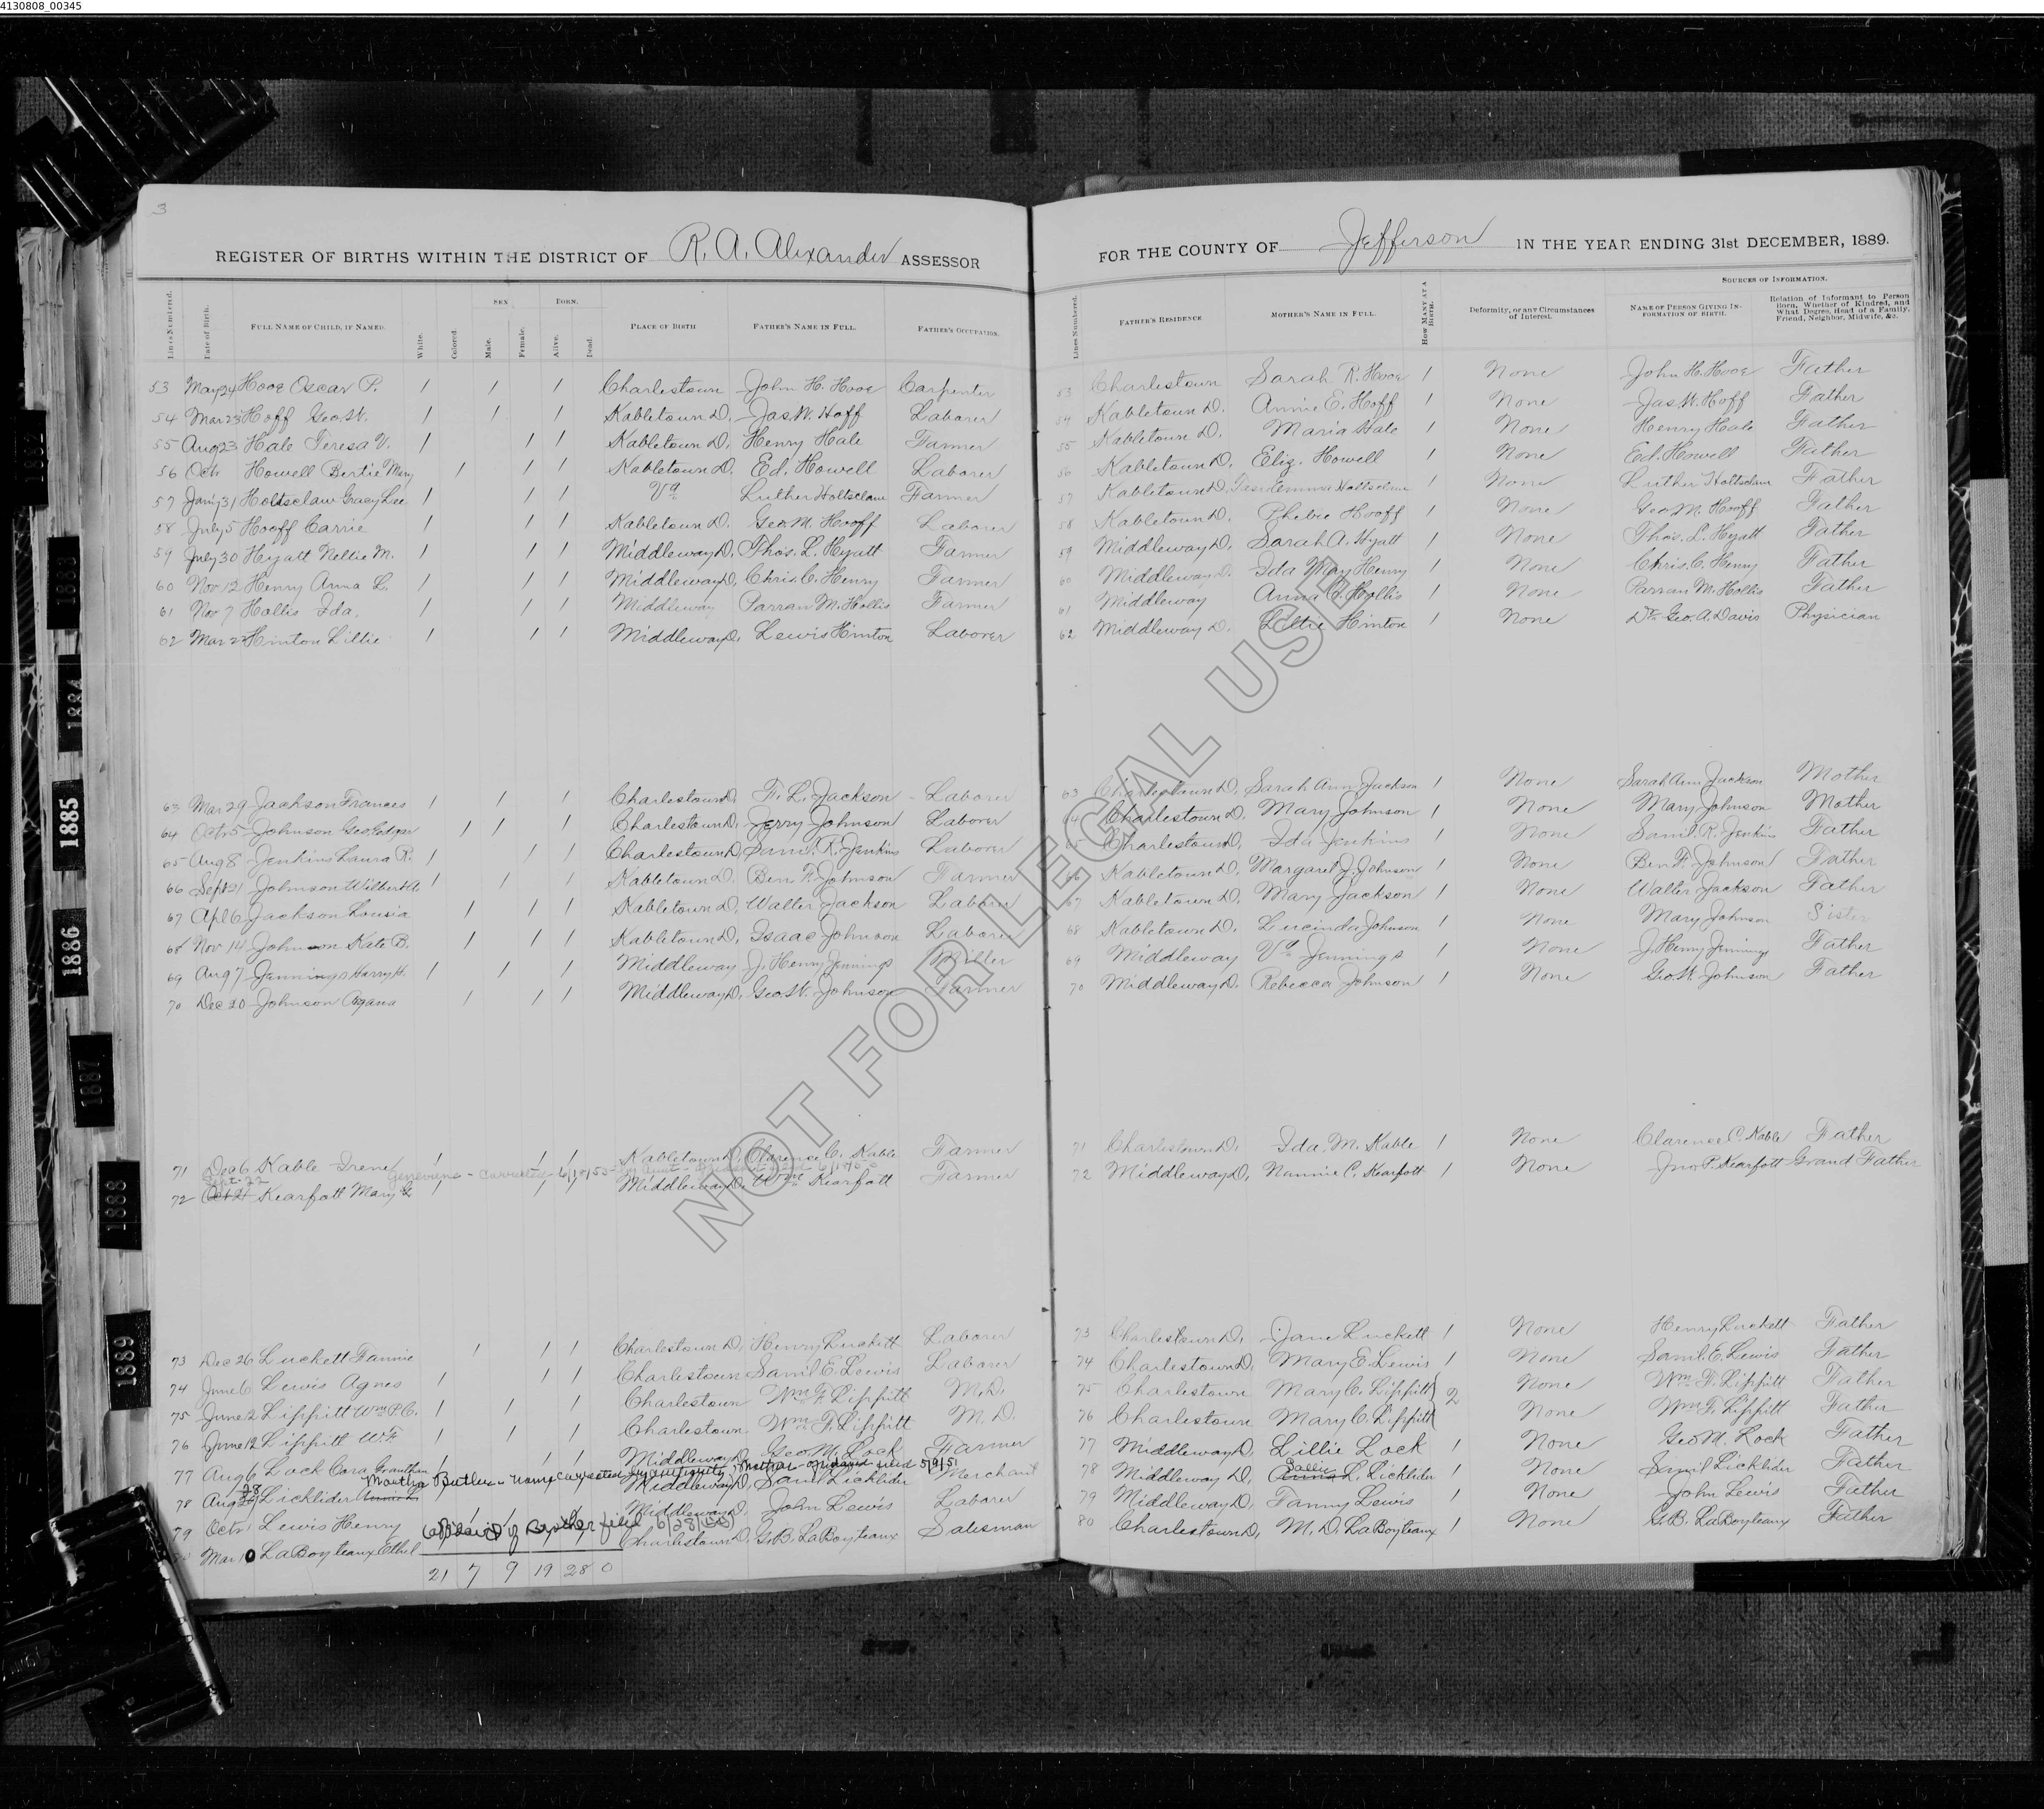 4130808_00345
3
REGISTER OF BIRTHS WITHIN THE DISTRICT OF R. A. Alexander ASSESSOR
FOR THE COUNTY OF Jefferson IN THE YEAR ENDING 31st DECEMBER, 1889.
Lines Numbered. Date of Birth. FULL NAME OF CHILD, IF NAMED. White. Colored. SEX Male. Female. BORN. Alive. Dead. PLACE OF BIRTH FATHER'S NAME IN FULL. FATHER'S OCCUPATION.
Lines Numbered. FATHER'S RESIDENCE MOTHER'S NAME IN FULL. HOW MANY AT A BIRTH. Deformity, or any Circumstances of Interest. SOURCES OF INFORMATION. NAME OF PERSON GIVING INFORMATION OF BIRTH. Relation of Informant to Person Born, Whether of Kindred, and What Degree, Head of a Family, Friend, Neighbor, Midwife, &c.
53 May 24 Hooe Oscar P. / / / Charlestown John H. Hooe Carpenter 53 Charlestown Sarah R. Hooe 1 None John H. Hooe Father
54 Mar 23 Hoff Geo. W. / / / Kabletown D. Jas. W. Hoff Laborer 54 Kabletown D. Annie E. Hoff 1 None Jas W. Hoff Father
55 Aug 23 Hale Teresa V. / / / Kabletown D. Henry Hale Farmer 55 Kabletown D. Maria Hale 1 None Henry Hale Father
56 Oct Howell Bertie Mary / / / Kabletown D. Ed. Howell Laborer 56 Kabletown D. Eliz. Howell 1 None Ed. Howell Father
57 Jany 31 Holtsclaw Gracy Lee / / / Va Luther Holtsclaw Farmer 57 Kabletown D. Emma Holtsclaw None Luther Holtsclaw Father
58 July 5 Hooff Carrie / / / Kabletown D. Geo. M. Hooff Laborer 58 Kabletown D. Phebie Hooff 1 None Geo. M. Hooff Father
59 July 30 Hyatt Nellie M. / / / Middleway D. Thos. L. Hyatt Farmer 59 Middleway D. Sarah A. Hyatt 1 None Thos. L. Hyatt Father
60 Nov 12 Henry Anna L. / / / Middleway D. Chris. C. Henry Farmer 60 Middleway D. Ida May Henry 1 None Chris. C. Henry Father
61 Nov 7 Hollis Ida. / / / Middleway Parran M. Hollis Farmer 61 Middleway Anna C. Hollis 1 None Parran M. Hollis Father
62 Mar 22 Hinton Lillie / / / Middleway D. Lewis Hinton Laborer 62 Middleway D. Lillie Hinton 1 None Dr. Geo. A. Davis Physician
63 Mar 29 Jackson Frances / / / Charlestown D. F. L. Jackson Laborer 63 Charlestown D. Sarah Ann Jackson 1 None Sarah Ann Jackson Mother
64 Octr 5 Johnson Geo Edgar / / / Charlestown D. Jerry Johnson Laborer 64 Charlestown D. Mary Johnson 1 None Mary Johnson Mother
65 Aug 8 Jenkins Laura R. / / / Charlestown D. Saml. R. Jenkins Laborer 65 Charlestown D. Ida Jenkins 1 None Saml. R. Jenkins Father
66 Sept 21 Johnson Wilbert / / / Kabletown D. Ben F. Johnson Farmer 66 Kabletown D. Margaret J. Johnson 1 None Ben F. Johnson Father
67 Apl 6 Jackson Lousia / / / Kabletown D. Walter Jackson Laborer 67 Kabletown D. Mary Jackson 1 None Walter Jackson Father
68 Nov 14 Johnson Kate B. / / / Kabletown D. Isaac Johnson Laborer 68 Kabletown D. Lucinda Johnson 1 None Mary Johnson Sister
69 Aug 7 Jennings Harry H. / / / Middleway J. Henry Jennings Miller 69 Middleway Va Jennings 1 None J. Henry Jennings Father
70 Dec 20 Johnson Agana / / / Middleway D. Geo. W. Johnson Farmer 70 Middleway D. Rebecca Johnson 1 None Geo. W. Johnson Father
71 Dec 6 Kable Irene / / / Kabletown D. Clarence C. Kable Farmer 71 Charlestown D. Ida. M. Kable 1 None Clarence C. Kable Father
Sept. 22 Genevieve - corrected
72 Oct 21 Kearfott Mary G / / / Middleway D. Wm Kearfott Farmer 72 Middleway D. Nannie C. Kearfott 1 None Jno P. Kearfott Grand Father
73 Dec 26 Luckett Fannie / / / Charlestown D. Henry Luckett Laborer 73 Charlestown D. Jane Luckett 1 None Henry Luckett Father
74 June 6 Lewis Agnes / / / Charlestown Saml E. Lewis Laborer 74 Charlestown D. Mary E. Lewis 1 None Saml. E. Lewis Father
75 June 2 Lippitt Wm P. C. / / / Charlestown Wm F. Lippitt M.D. 75 Charlestown Mary C. Lippitt } 2 None Wm F. Lippitt Father
76 June 12 Lippitt W. F. / / / Charlestown Wm F. Lippitt M.D. 76 Charlestown Mary C. Lippitt None Wm F. Lippitt Father
77 Aug 6 Lock Cora Grantham / / / Middleway D. Geo. M. Lock Farmer 77 Middleway D. Lillie Lock 1 None Geo. M. Lock Father
Martha Butler - name corrected affidavit filed 5/9/51
78 Aug 28 Licklider Middleway D. Saml Licklider Merchant 78 Middleway D. Sallie L. Licklider 1 None Saml Licklider Father
79 Octr 1 Lewis Henry / / / Middleway D. John Lewis Laborer 79 Middleway D. Fanny Lewis 1 None John Lewis Father
affidavit of Brother filed 6/28/
80 Mar 10 LaBoyteaux Ethel Charlestown D. G. B. LaBoyteaux Salesman 80 Charlestown D. M. D. LaBoyteaux 1 None G. B. LaBoyteaux Father
21 7 9 19 28 0
NOT FOR LEGAL USE
1882
1883
1884
1885
1886
1887
1888
1889